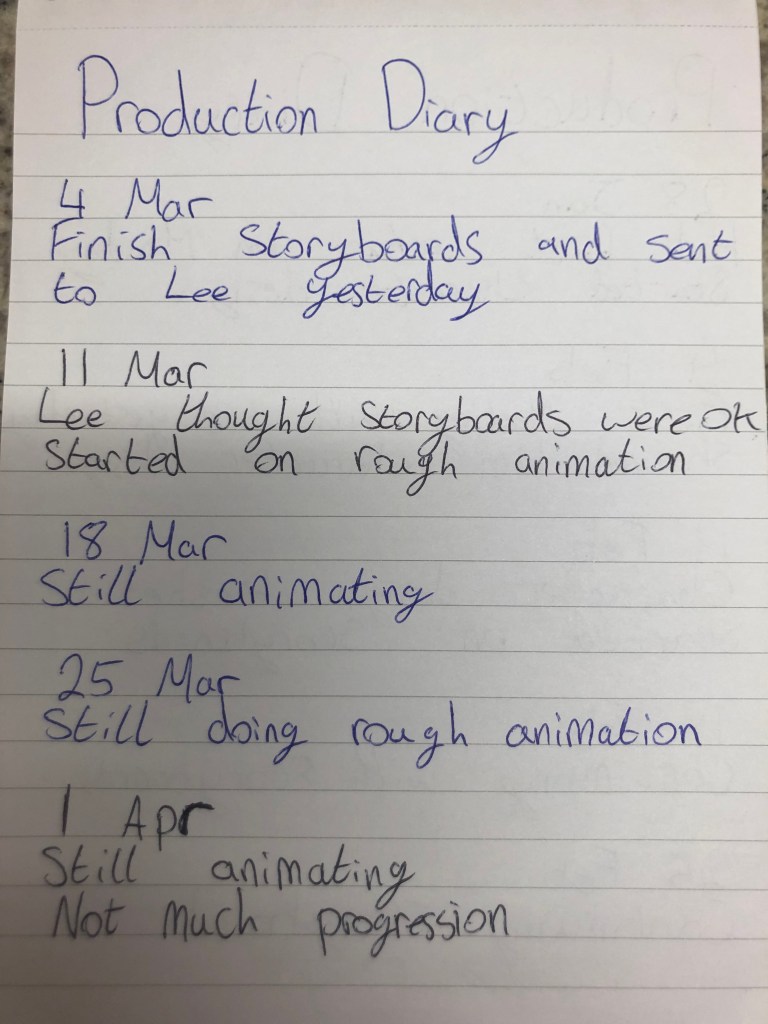 Production Diary
4 Mar
Finish Storyboards and sent
to Lee yesterday
11 Mar
Lee thought storyboards were OK
Started on rough animation
18 Mar
Still animating
25 Mar
Still doing rough animation
1 Apr
Still animating
Not much progression